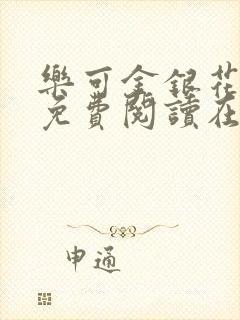 樂可金銀花
免費閱讀在
申通